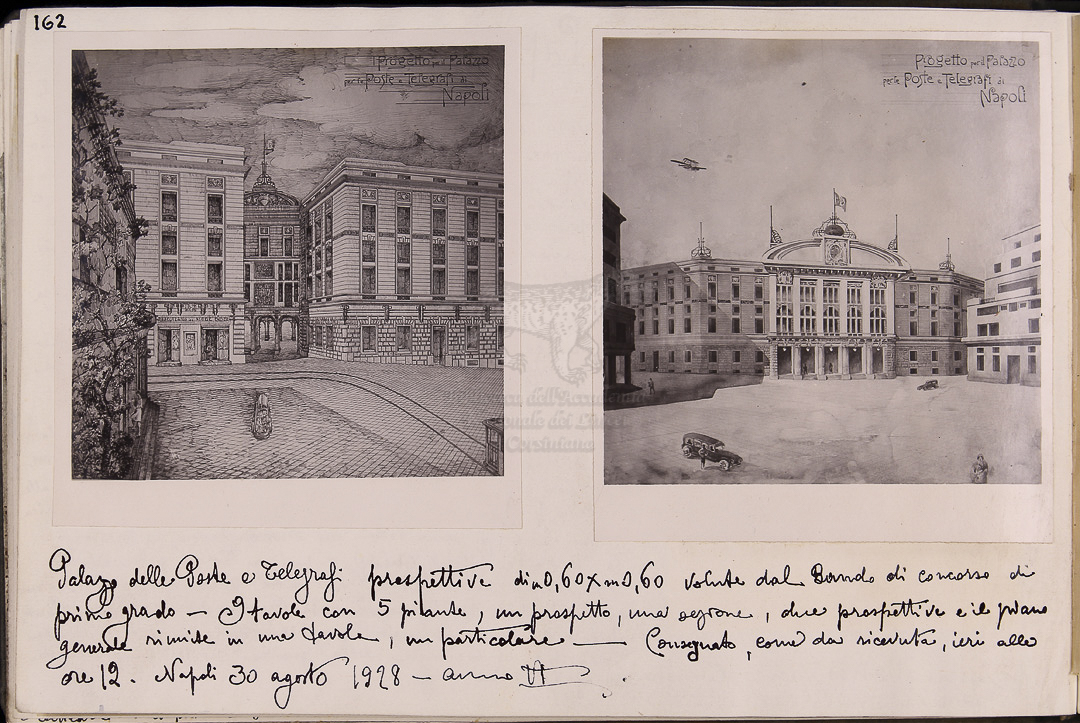 162
Progetto per il Palazzo
per le Poste e Telegrafi di
Napoli
Progetto per il Palazzo
per le Poste e Telegrafi di
Napoli
Palazzo delle Poste e Telegrafi prospettive di m 0,60 x m 0,60 volute dal Bando di concorso di
primo grado — 9 tavole con 5 piante, un prospetto, una sezione, due prospettive e il piano
generale riunite in una tavola, un particolare — Consegnato, come da ricevuta, ieri alle
ore 12. Napoli 30 agosto 1928 — anno VI